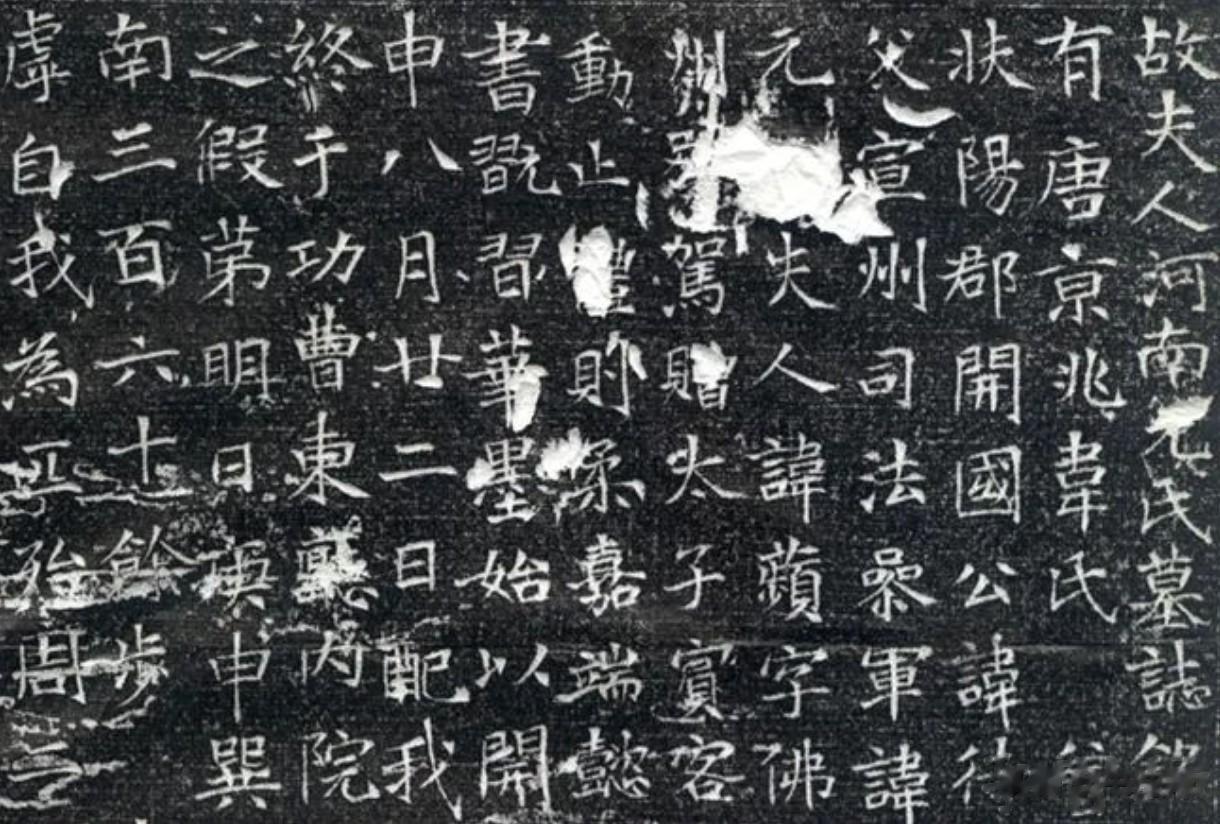 故夫人河南元氏墓誌銘
有唐京兆韋氏
扶陽郡開國公諱
父宣州司法叅軍諱
元 夫人諱蘋字佛
州別駕贈太子賓客
動止禮則柔嘉端懿
書翫習華墨始以開
申八月廿二日配我
終于功曹東廳內院
之假第明日庚申巽
南三百六十餘步
虖自我為 殆周